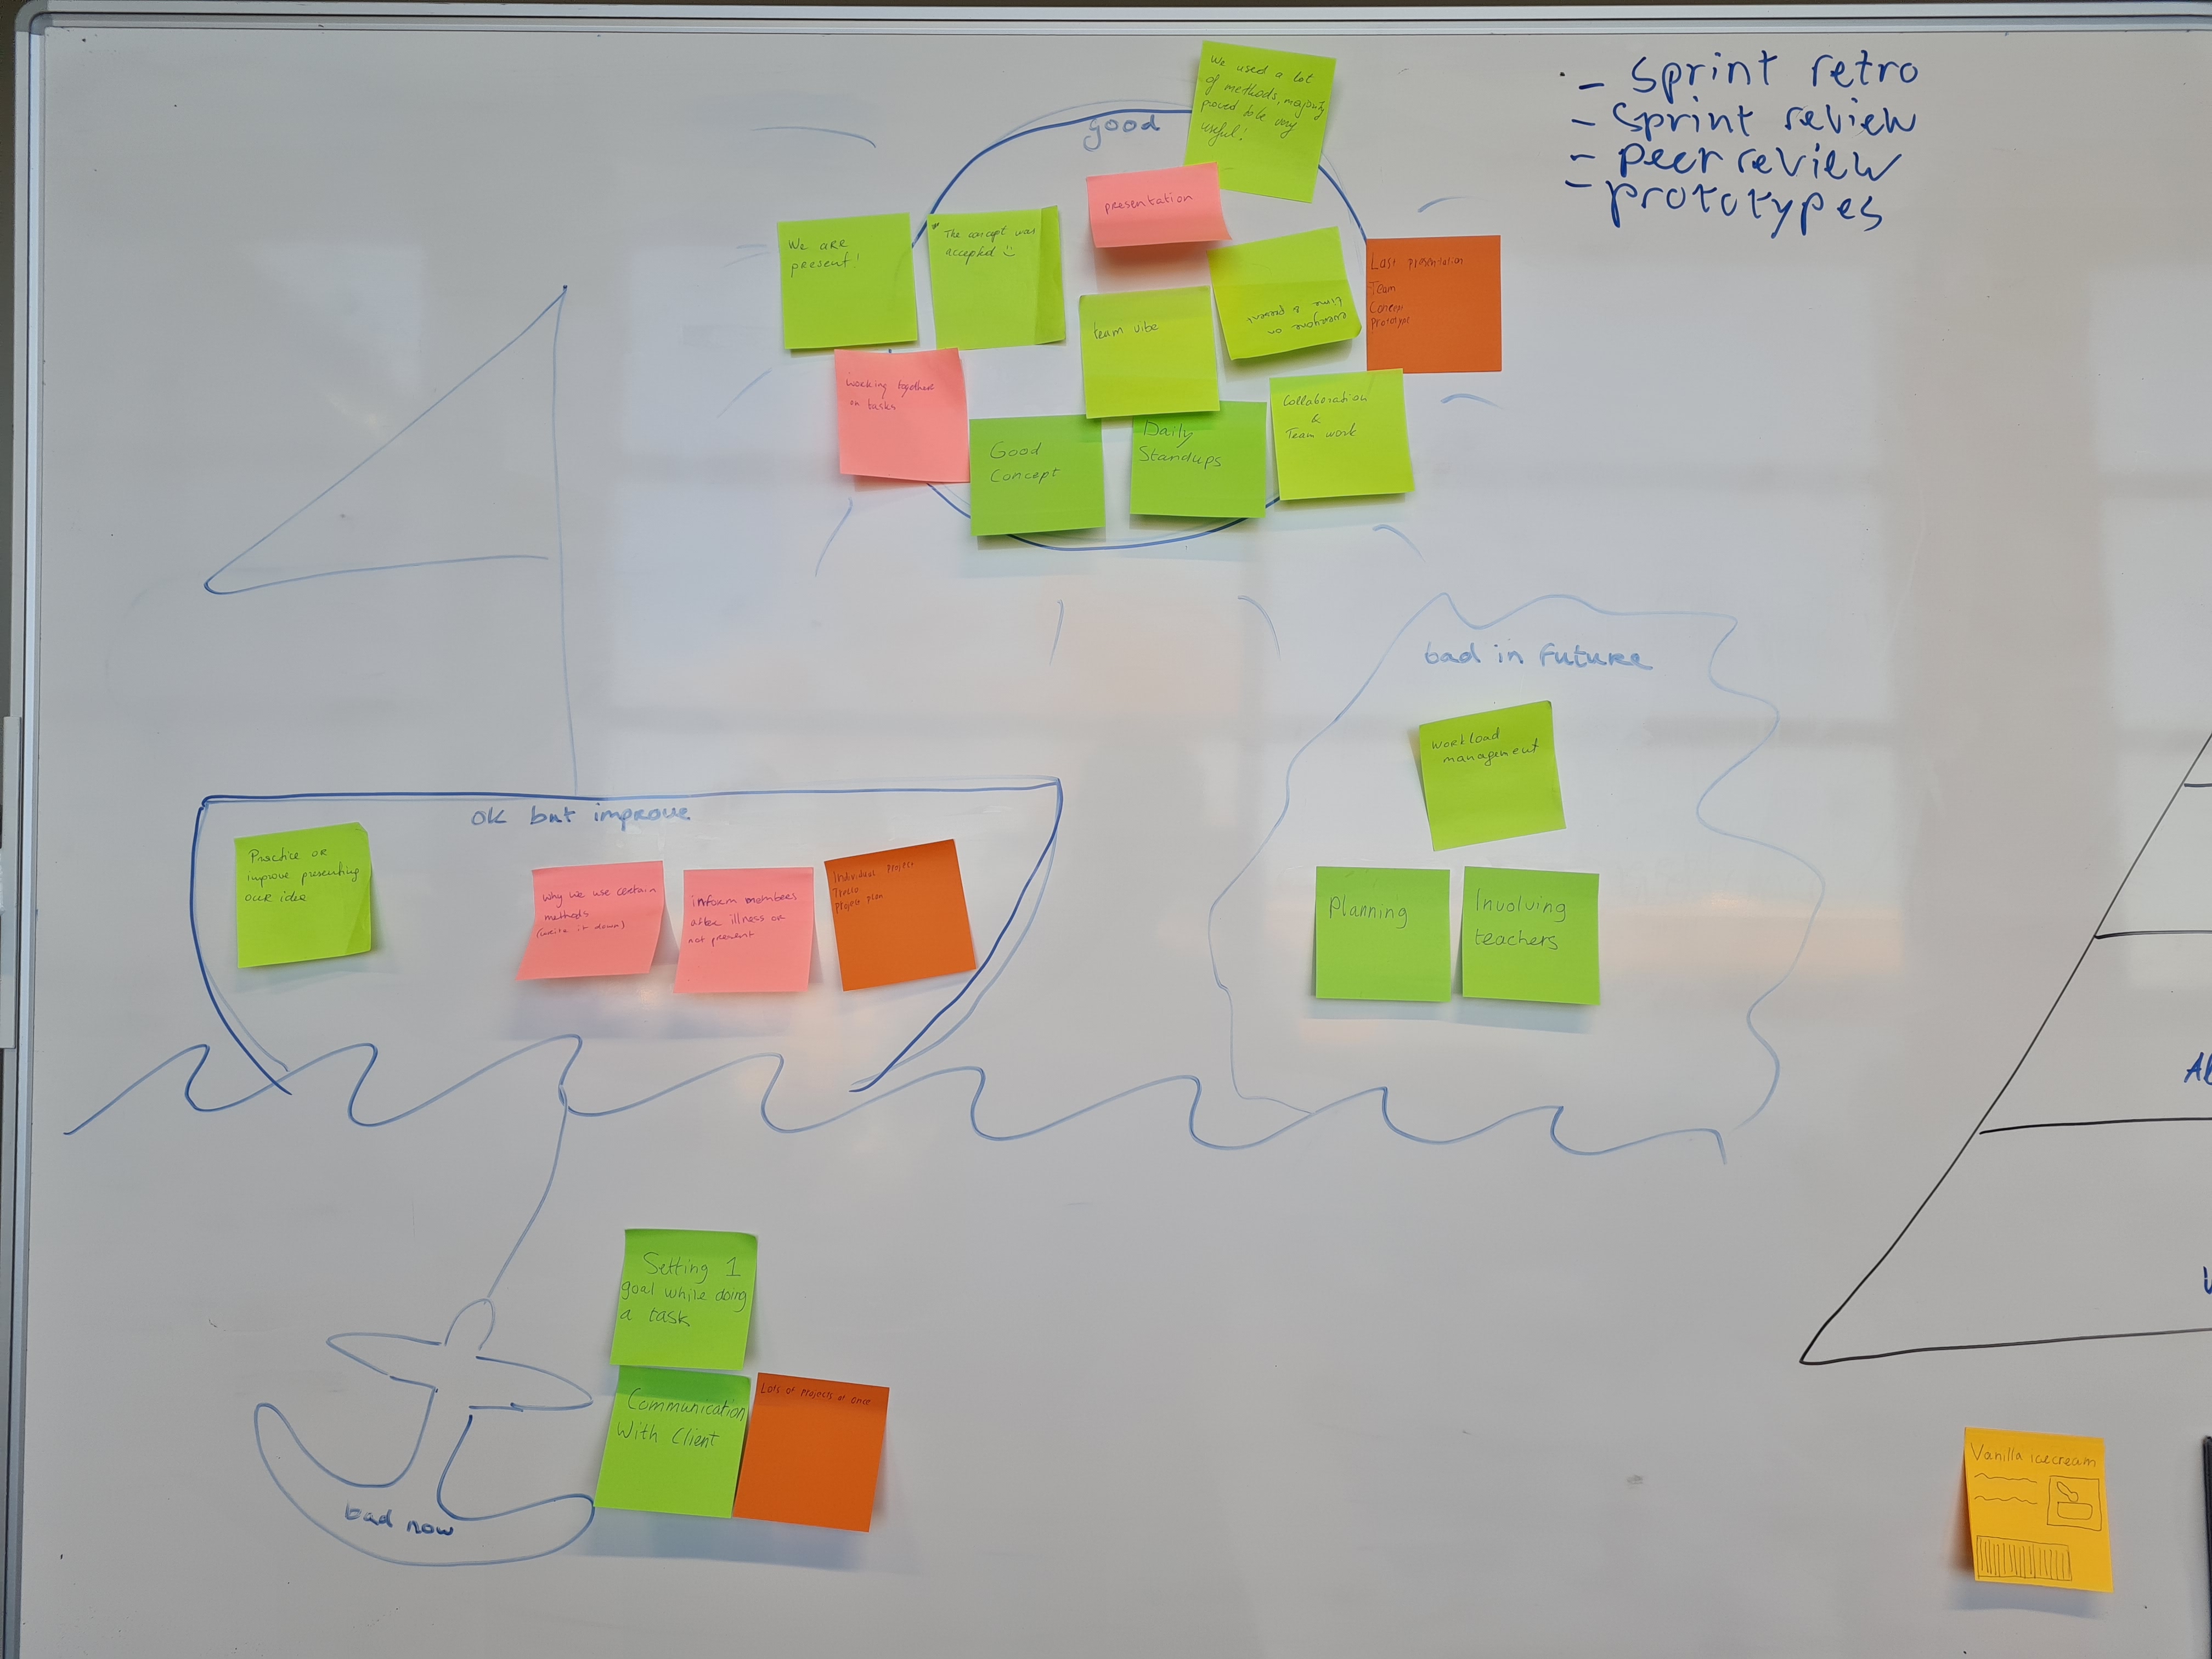 - Sprint retro
- Sprint review
- peer review
- prototypes
good
We used a lot
of methods, majority
proved to be very
useful!
presentation
We are
present!
The concept was
accepted :)
team vibe
everyone on
time & present
Last presentation
Team
Concept
Prototype
working together
on tasks
Good
Concept
Daily
Standups
Collaboration
&
Team work
bad in future
workload
management
Planning
Involving
teachers
ok but improve
Practice or
improve presenting
our idea
why we use certain
methods
(write it down)
inform members
after illness or
not present
Individual project
Trello
Project plan
Setting 1
goal while doing
a task
Communication
With Client
Lots of projects at once
bad now
Vanilla icecream